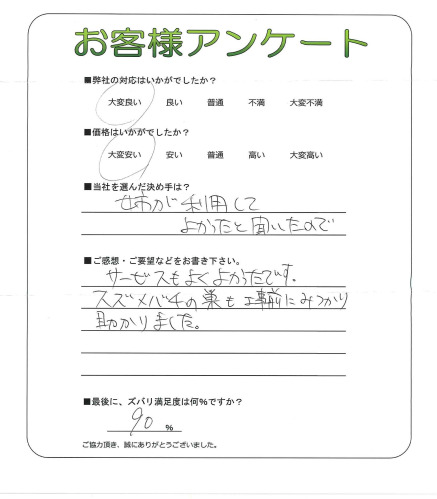 お客様アンケート
■弊社の対応はいかがでしたか？
大変良い 良い 普通 不満 大変不満
■価格はいかがでしたか？
大変安い 安い 普通 高い 大変高い
■当社を選んだ決め手は？
姉が利用して
よかったと聞いたので
■ご感想・ご要望などをお書き下さい。
サービスもよくよかったです。
スズメバチの巣も事前にみつかり
助かりました。
■最後に、ズバリ満足度は何%ですか？
90 %
ご協力頂き、誠にありがとうございました。